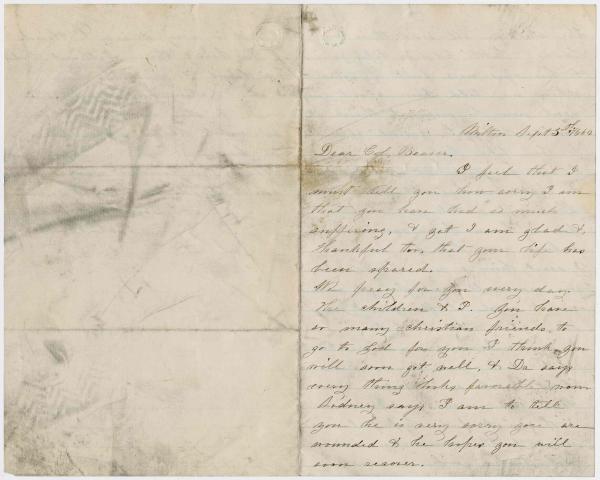 Milton Sept 5th 1864
Dear Col. Beaver,
I feel that I
must tell you how sorry I am
that you have had so much
suffering, & yet I am glad &
thankful too, that your life has
been spared.
We pray for you every day
The children & I. You have
so many christian friends to
go to God for you I think you
will soon get well, & Dr says
every thing looks favorable now
Rodney says I am to tell
you he is very sorry you are
wounded & he hopes you will
soon recover.